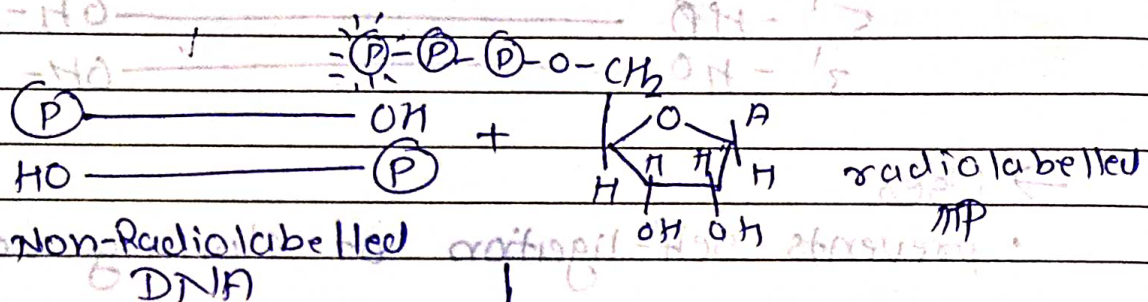 P - P - P - O - CH2
P OH + O A
HO P H H H H radiolabelled
OH OH
Non-Radiolabelled
DNA